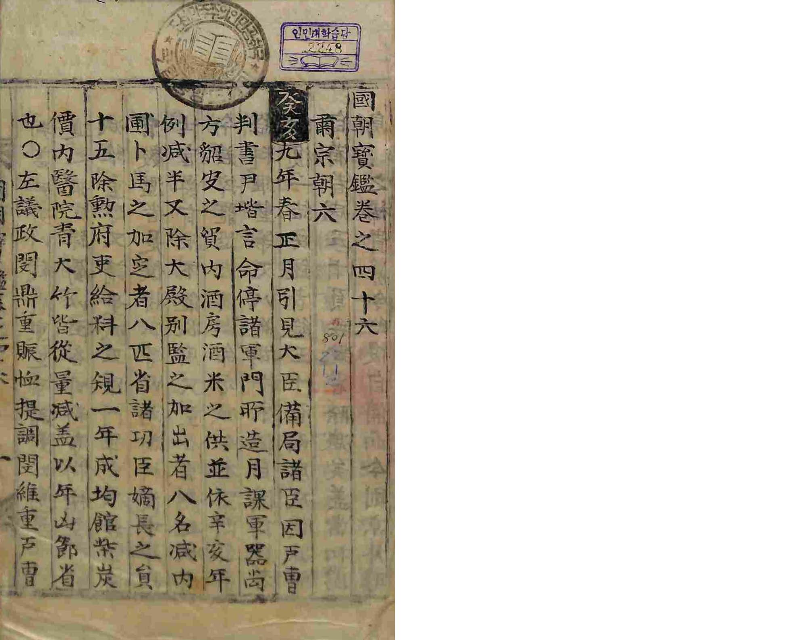 인민대학습당
2248
國朝寶鑑卷之四十六
肅宗朝六
癸亥九年春正月引見大臣備局諸臣因戶曹
判書尹堦言命停諸軍門所造月課軍器尚
方貂皮之貿內酒房酒米之供並依辛亥年
例减半又除大殿別監之加出者八名减内
圃卜馬之加定者八匹省諸功臣嫡長之貟
十五除勲府吏給料之規一年成均館柴炭
價内醫院青大竹皆從量减盖以年凶節省
也○左議政閔鼎重賑恤提調閔維重戶曹